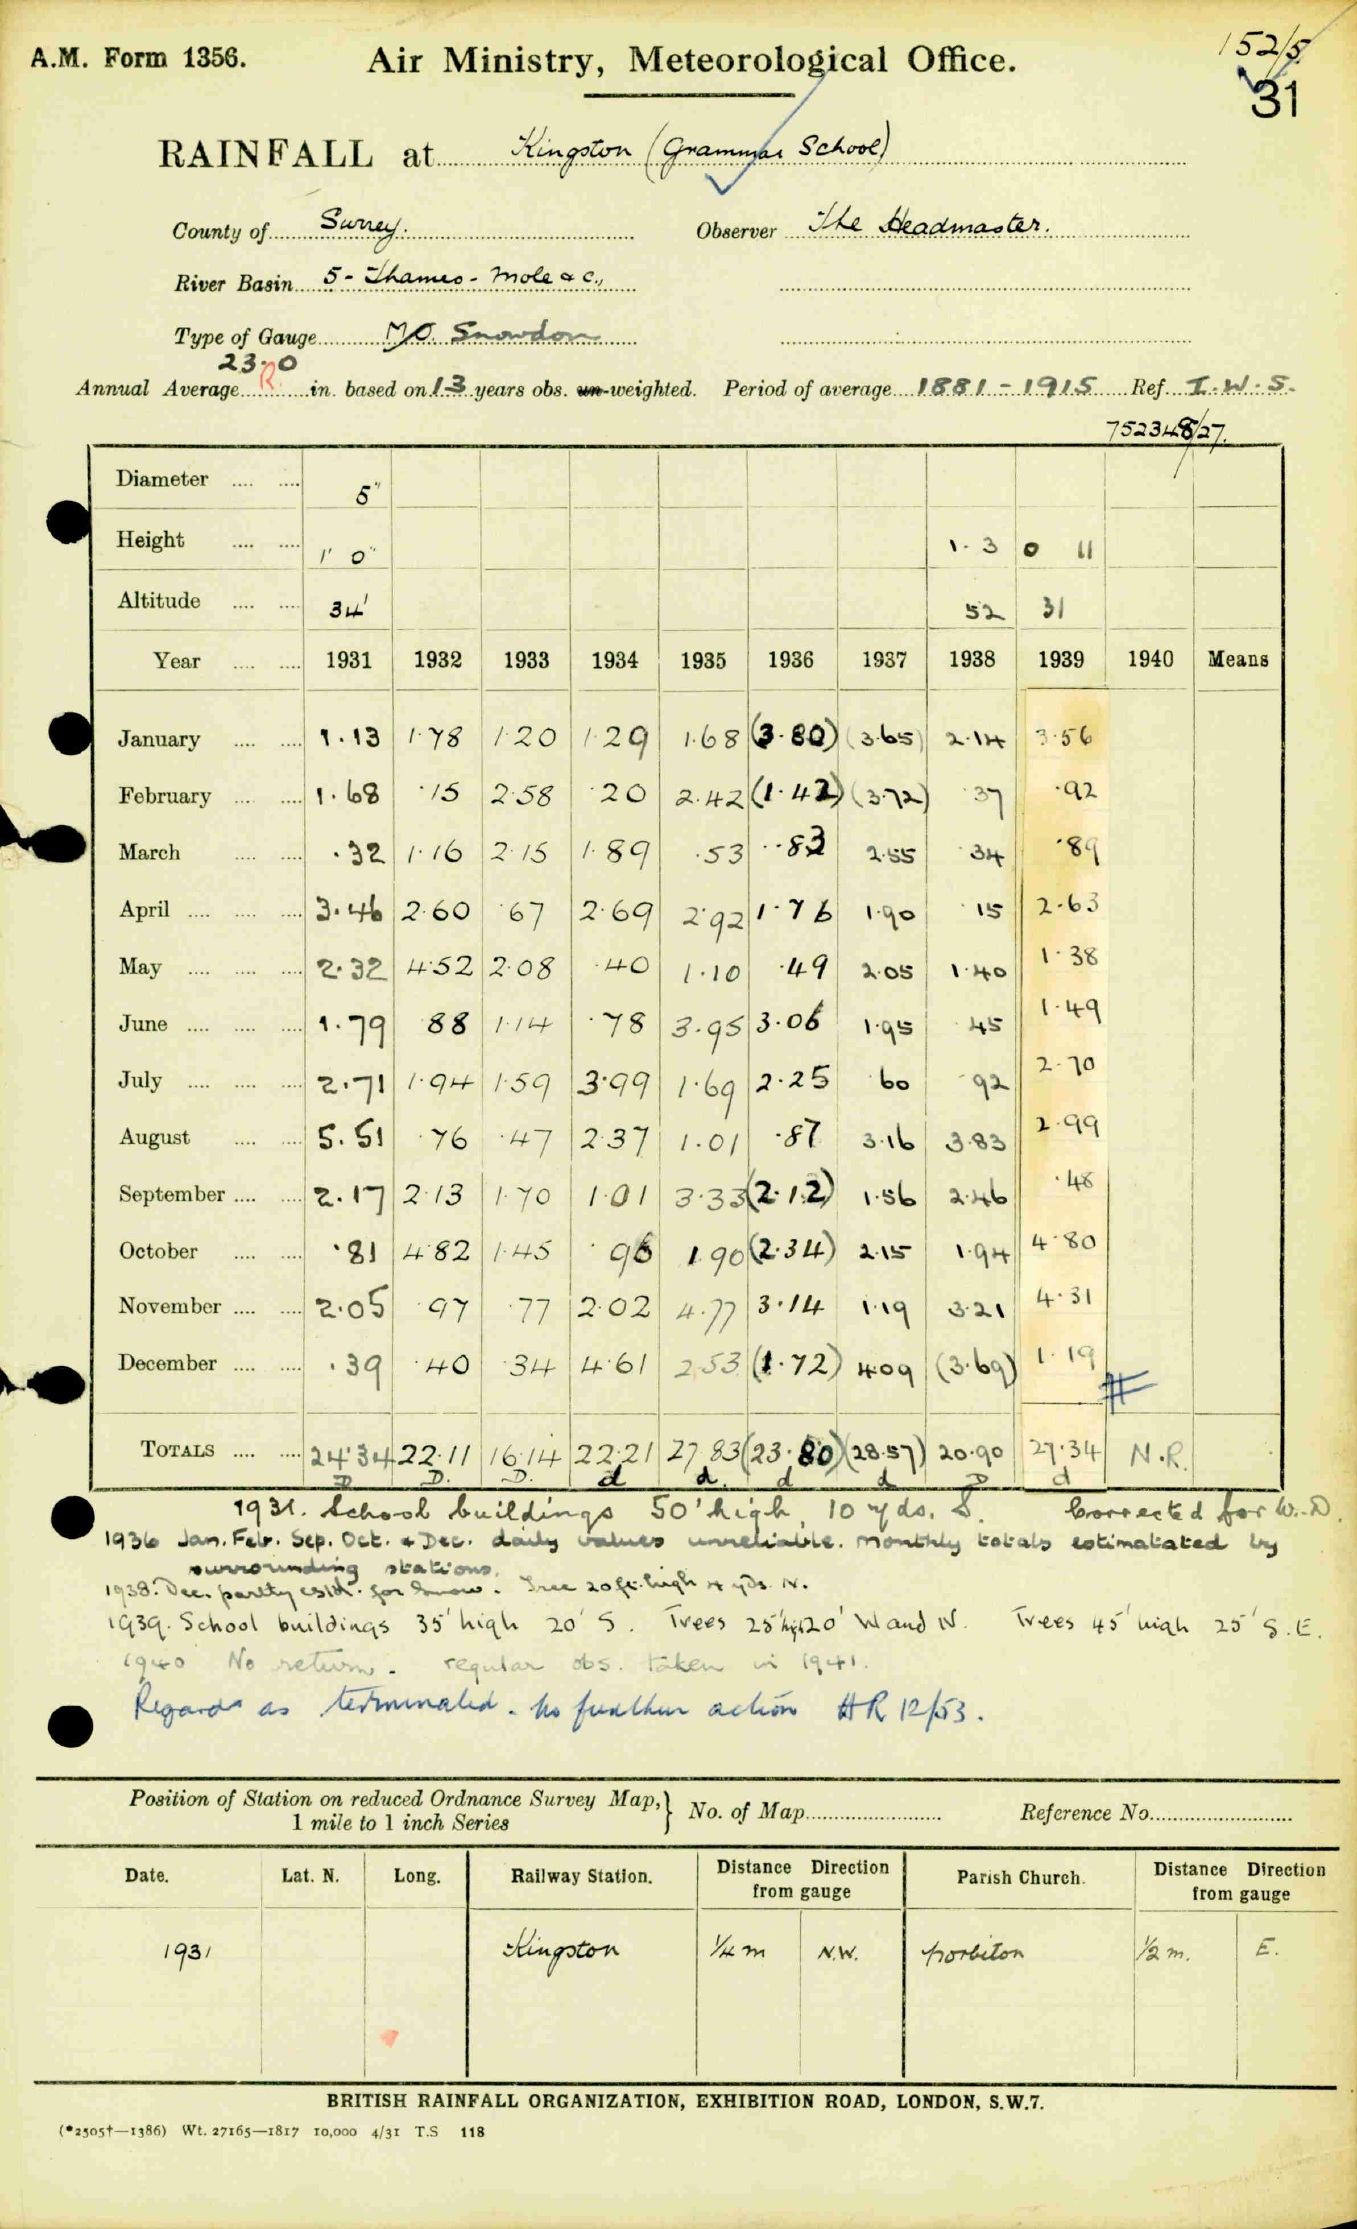 A.M. Form 1356. Air Ministry, Meteorological Office. 152/5
31
RAINFALL at Kingston (Grammar School)
County of Surrey. Observer The Headmaster.
River Basin 5 - Thames - Mole & c.,
Type of Gauge M.O. Snowdon
23.0
Annual Average R in. based on 13 years obs. un-weighted. Period of average 1881 - 1915 Ref. I.W.S.
752348/27.
Diameter .... .... 5"
Height .... .... 1' 0" 1.3 0 11
Altitude .... .... 34' 52 31
Year .... .... 1931 1932 1933 1934 1935 1936 1937 1938 1939 1940 Means
January .... .... 1.13 1.78 1.20 1.29 1.68 (3.80) (3.65) 2.14 3.56
February .... .... 1.68 .15 2.58 .20 2.42 (1.42) (3.72) .37 .92
March .... .... .32 1.16 2.15 1.89 .53 .83 2.55 .34 .89
April .... .... .... 3.46 2.60 .67 2.69 2.92 1.76 1.90 .15 2.63
May .... .... .... 2.32 4.52 2.08 .40 1.10 .49 2.05 1.40 1.38
June .... .... .... 1.79 .88 1.14 .78 3.95 3.06 1.95 .45 1.49
July .... .... .... 2.71 1.94 1.59 3.99 1.69 2.25 .60 .92 2.70
August .... .... 5.51 .76 .47 2.37 1.01 .87 3.16 3.83 2.99
September .... .... 2.17 2.13 1.70 1.01 3.33 (2.12) 1.56 2.46 .48
October .... .... .81 4.82 1.45 .96 1.90 (2.34) 2.15 1.94 4.80
November .... .... 2.05 .97 .77 2.02 4.77 3.14 1.19 3.21 4.31
December .... .... .39 .40 .34 4.61 2.53 (1.72) 4.09 (3.69) 1.19
TOTALS .... .... 24.34 22.11 16.14 22.21 27.83 (23.80) (28.57) 20.90 27.34 N.R.
D D. D. d d. d d D d
1931. School buildings 50' high, 10 yds. S. Corrected for W.D.
1936 Jan. Feb. Sep. Oct. & Dec. daily values unreliable. Monthly totals estimatated by
surrounding stations.
1938. Dec. partly estd. for snow. Tree 20 ft. high 4 yds. N.
1939. School buildings 35' high 20' S. Trees 25' high 20' W and N. Trees 45' high 25' S.E.
1940 No return. regular obs. taken in 1941.
Regard as terminated. No further action HR 12/53.
Position of Station on reduced Ordnance Survey Map, } No. of Map Reference No.
1 mile to 1 inch Series
Date. Lat. N. Long. Railway Station. Distance Direction from gauge Parish Church. Distance Direction from gauge
1931 Kingston 1/4 m N.W. Norbiton 1/2 m. E.
BRITISH RAINFALL ORGANIZATION, EXHIBITION ROAD, LONDON, S.W.7.
(*2505†—1386) Wt. 27165—1817 10,000 4/31 T.S 118